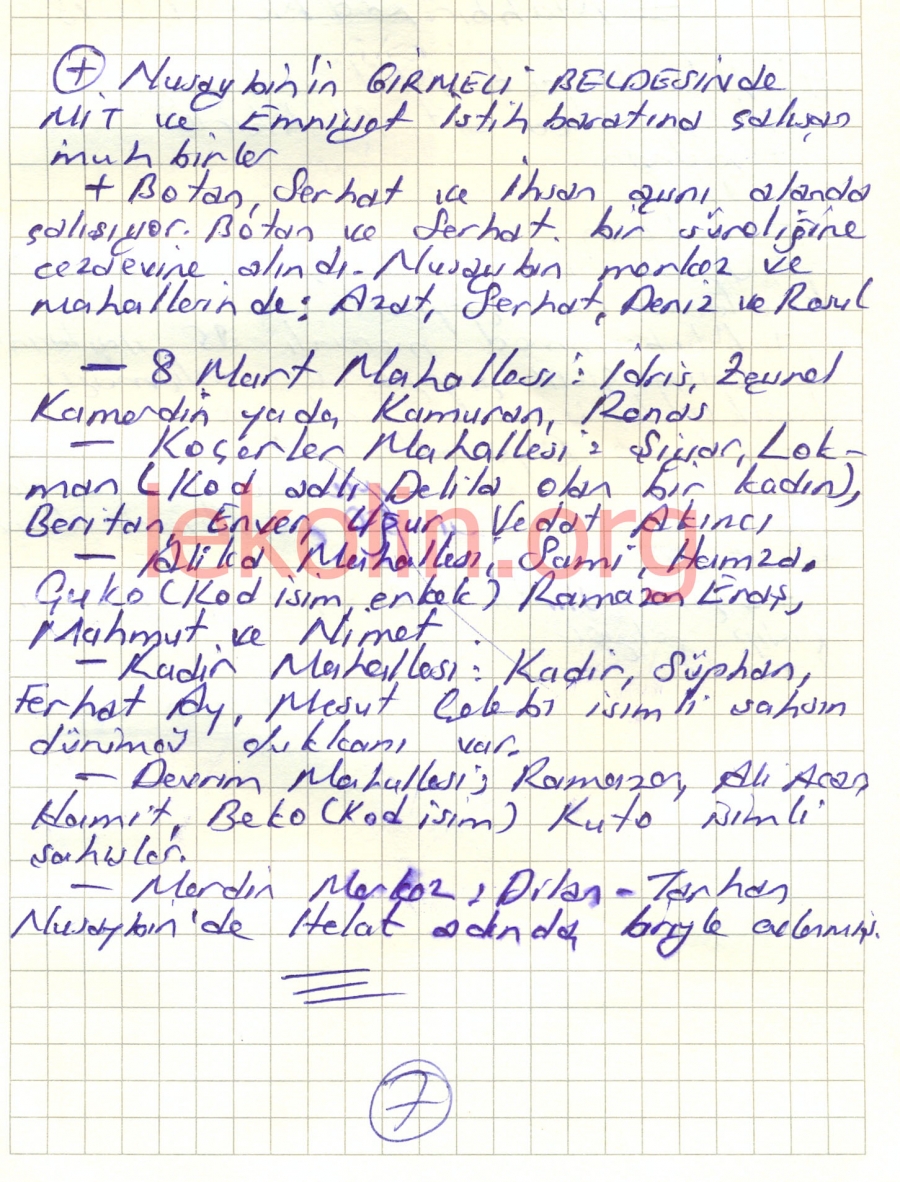 + Nusaybin'in GİRMELİ BELDESİNDE
MİT ve Emniyet istihbaratına çalışan
muhbirler
+ Botan, Serhat ve İhsan aynı alanda
çalışıyor. Botan ve Serhat bir süreliğine
cezaevine alındı. Nusaybin merkez ve
mahallerinde: Azat, Serhat, Deniz ve Resul
— 8 Mart Mahallesi: İdris, Zeynel
Kamerdin yada Kamuran, Ronas
— Koçerler Mahallesi: Şiyar, Lok-
man (Kod adlı Delila olan bir kadın),
Beritan, Enver, Uğur Vedat Akıncı
lekolin.org
— Mahallesi, Sami, Hamza,
(Kod isim erkek) Ramazan
Mahmut ve Nimet
— Kadir Mahallesi: Kadir, Süphan,
Ferhat Ay, Mesut Çelebi isimli şahsın
dürümcü dukkanı var.
— Devrim Mahallesi; Ramazan, Ali Acar,
Hamit, Beko (Kod isim) Kuto isimli
şahıslar.
— Mardin Merkez; Dilan - Tarhan
Nusaybin'de Helat adında biriyle evlenmiş.
7